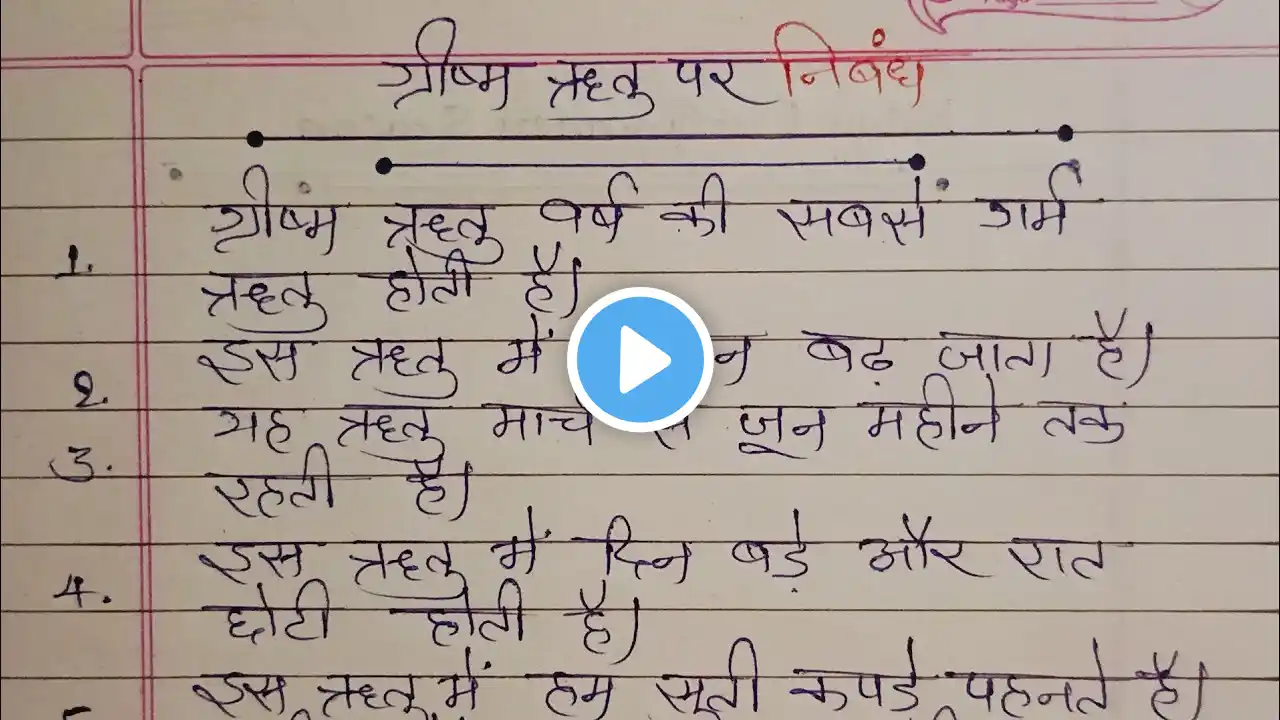 ग्रीष्म ऋतु पर निबंध
ग्रीष्म ऋतु वर्ष की सबसे गर्म
1.
ऋतु होती है।
इस ऋतु में न बढ़ जाता है।
2.
यह ऋतु मार्च से जून महीने तक
3.
रहती है।
इस ऋतु में दिन बड़े और रात
4.
छोटी होती है।
इस ऋतु में हम सूती कपड़े पहनते है।